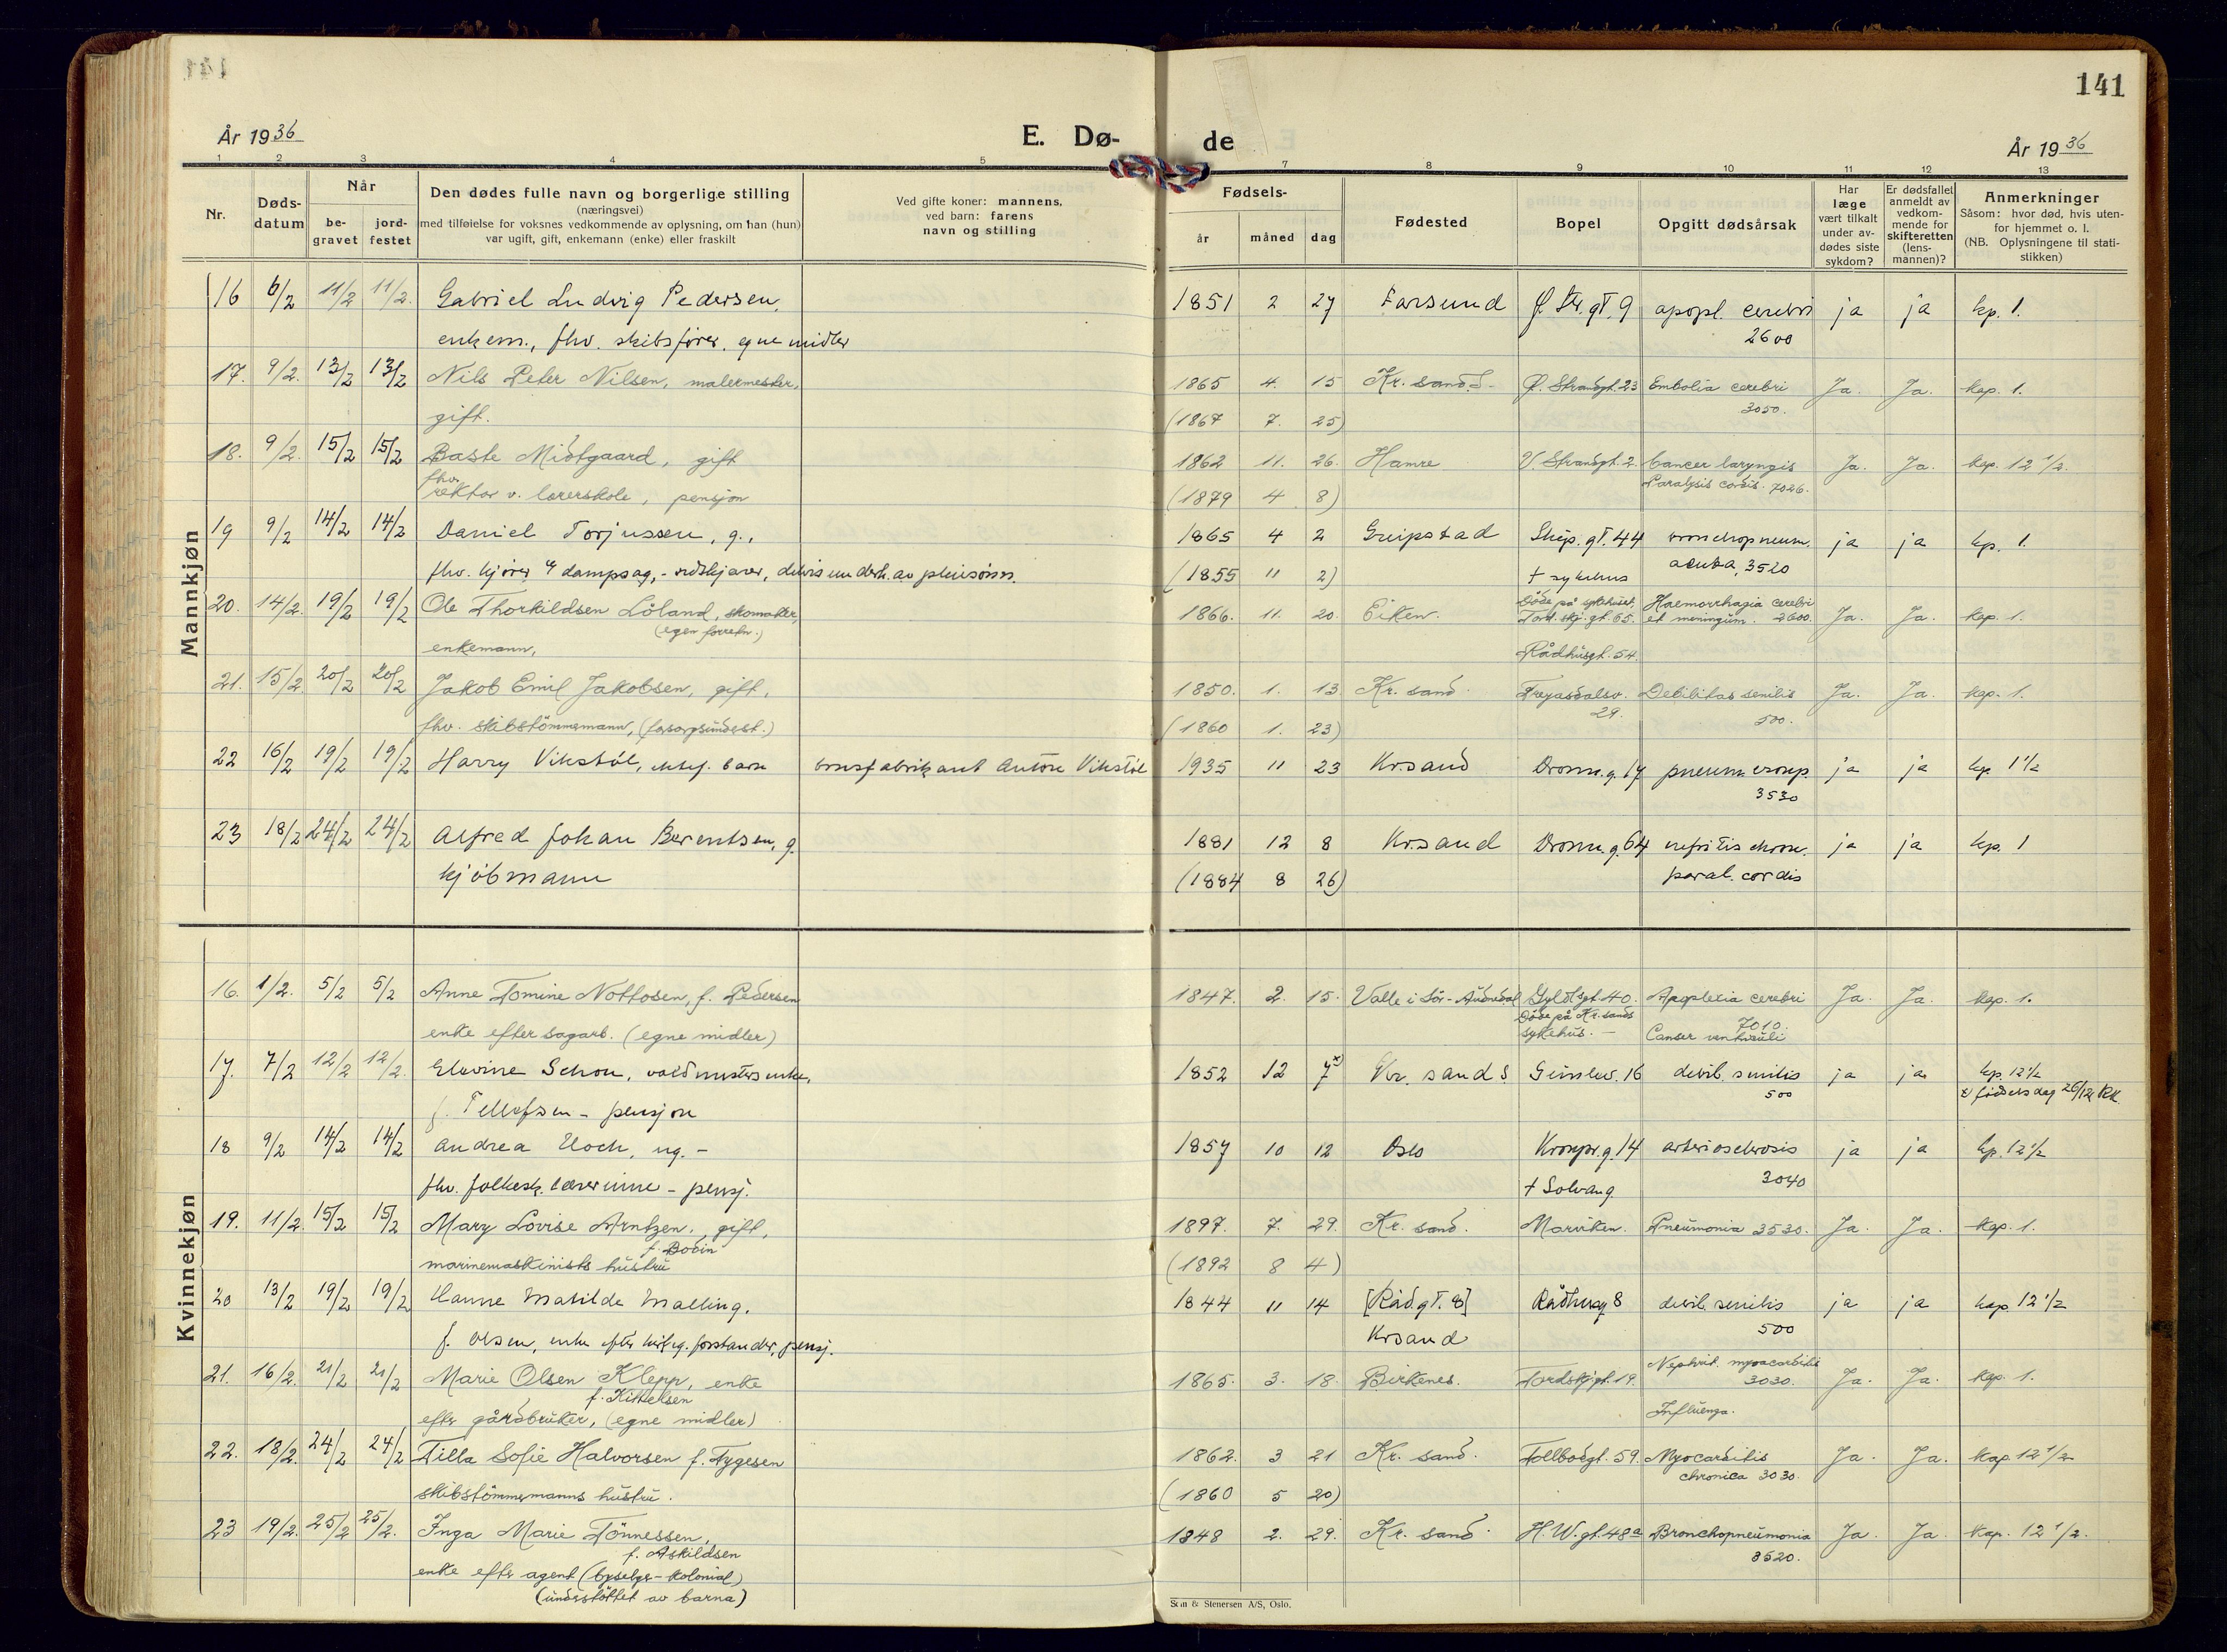 141
År 1936
E. Dø-
de
År 1936
1 2 3 4 5
7 8 9 10 11 12 13
Nr.
Døds-
datum
Når
be-
gravet
jord-
festet
Den dødes fulle navn og borgerlige stilling
(næringsvei)
med tilføielse for voksnes vedkommende av oplysning, om han (hun)
var ugift, gift, enkemann (enke) eller fraskilt
Ved gifte koner: mannens,
ved barn: farens
navn og stilling
Fødsels-
år måned dag
Fødested
Bopel
Opgitt dødsårsak
Har
læge
vært tilkalt
under av-
dødes siste
sykdom?
Er dødsfallet
anmeldt av
vedkom-
mende for
skifteretten
(lens-
mannen)?
Anmerkninger
Såsom: hvor død, hvis uten-
for hjemmet o. l.
(NB. Oplysningene til stati-
stikken)
Mannkjøn
16 6/2 11/2 11/2. Gabriel Ludvig Pedersen, 1851 2 27 Farsund Ø. Str. gt. 9 apopl. cerebri ja ja kp. 1.
enkem., fhv. skibsfører, egne midler 2600
17. 9/2. 13/2 13/2 Nils Peter Nilsen, malermester, 1865 4. 15 Kr. sand. S- Ø. Strandgt. 23 Embolia cerebri Ja. Ja. kap. 1.
gift. (1867 7. 25) 3050.
18. 9/2. 15/2 15/2 Baste Midtgaard, gift 1862 11. 26. Hamre V. Strandgt. 2. Cancer laryngis Ja. Ja. kap. 12 1/2.
fhv. rektor v. lærerskole, pensjon (1879 4 8) Paralysis cordis. 7026.
19 9/2 14/2 14/2 Daniel Torjussen, g., 1865 4 2 Greipstad Skip. gt. 44 bronchopneum. ja ja kp. 1.
(1855 11 2) † sykehus acuta, 3520
20. 14/2. 19/2 19/2 Ole Thorkildsen Löland, skomaker, 1866. 11. 20. Eiken. Döde på sykehuset, Haemorrhagia cerebri Ja. Ja. kap. 1.
(egen forretn.) Tord. skj. gt. 65. et meningum. 2600.
enkemann, Rådhusgt. 54.
21. 15/2. 20/2 20/2 Jakob Emil Jakobsen, gift, 1850. 1. 13 Kr. sand. Frøyasdalsv. Debilitas senilis Ja. Ja. kap. 1.
fhv. skibstömmermann, (forsorgsunderst.) (1860 1. 23) 29. 500.
22 16/2 19/2 19/2 Harry Vikstöl, ektef. barn brusfabrikant Antore Vikstöl 1935 11 23 Kr.sand Dronn. g. 17 pneum. croup. ja ja kp 1 1/2
3530
23 18/2 24/2 24/2 Alfred Johan Berentsen, g. 1881 12 8 Kr.sand Dronn. g. 64 nefritis chron. ja ja kp. 1
kjöbmann (1884 8 26) paral. cordis
Kvinnekjøn
16. 1/2. 5/2 5/2 Anne Tomine Nottosen, f. Pedersen 1847. 2. 15. Valle i Sör-Audnedal Gyldlsgt. 40. Apoplexia cerebri Ja. Ja. kap. 1.
enke efter sagarb. (egne midler) Döde på Kr. sands 7010.
sykehus. – Canser ventriculi
17. 7/2 12/2 12/2. Elevine Schou, 1852 12 7 x) Kr. sand S Gimlev. 16 debil. senilis ja ja kp. 12 1/2
f. Tellefsen - pensjon 500 x) födselsdag 26/12 KK.
18 9/2 14/2 14/2 Andrea Koch, ug. – 1857 10 12 Oslo Kronpr. g. 14 arteriosclerosis ja ja kp. 12 1/2
fhv. folkesk. lærerinne – pensj. † Solvang 3040
19. 11/2. 15/2 15/2 Mary Lovise Arntzen, gift, 1897. 7. 29. Kr. sand. Marviken. Pneumonia 3530. Ja. Ja. kap. 1.
f. Bodin
marinemaskinists hustru (1892 8 4)
20 13/2 19/2 19/2 Hanne Matilde Malling, 1844 11 14 [Rådgt. 8] Rådhusg 8 debil. senilis ja ja kap. 12 1/2
f. Olsen, enke efter forstander, pensj. Krsand 500
21. 16/2. 21/2 21/2 Marie Olsen Klepp, enke 1865. 3. 18. Birkenes. Tordskjgt. 19. Nephrit. myocarditis Ja. Ja. kap. 1.
f. Kittelsen 3030.
efter gårdbruker, (egne midler) Influenza.
22. 18/2. 24/2 24/2 Tilla Sofie Halvorsen f. Tygesen 1862. 3 21 Kr. sand. Tollbodgt. 59. Myocarditis Ja. Ja. Kap. 12 1/2
skibstömmermanns hustru. (1860 5 20) chronica 3030.
23 19/2. 25/2 25/2. Inga Marie Tönnessen, 1848 2. 29. Kr. sand. H. W. gt. 48a Bronchopneumonia Ja. Ja. Kap. 12 1/2.
f. Askildsen 3520.
enke efter agent (byselger-kolonial)
(understöttet av barna)
Stenersen A/S, Oslo.